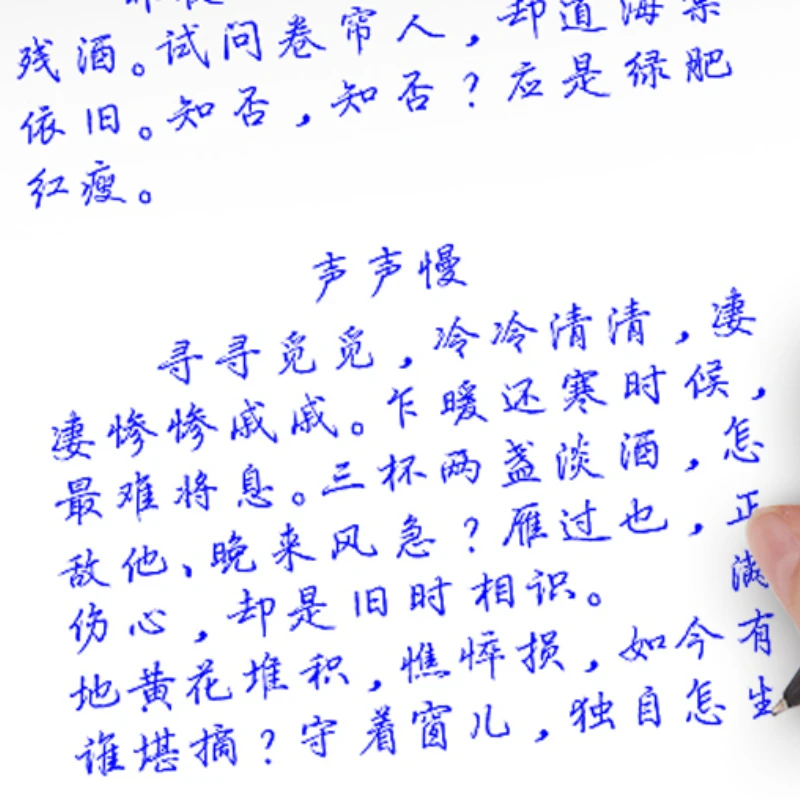 残酒。试问卷帘人，却道海棠
依旧。知否，知否？应是绿肥
红瘦。
声声慢
寻寻觅觅，冷冷清清，凄
凄惨惨戚戚。乍暖还寒时候，
最难将息。三杯两盏淡酒，怎
敌他、晚来风急？雁过也，正
伤心，却是旧时相识。 满
地黄花堆积，憔悴损，如今有
谁堪摘？守着窗儿，独自怎生